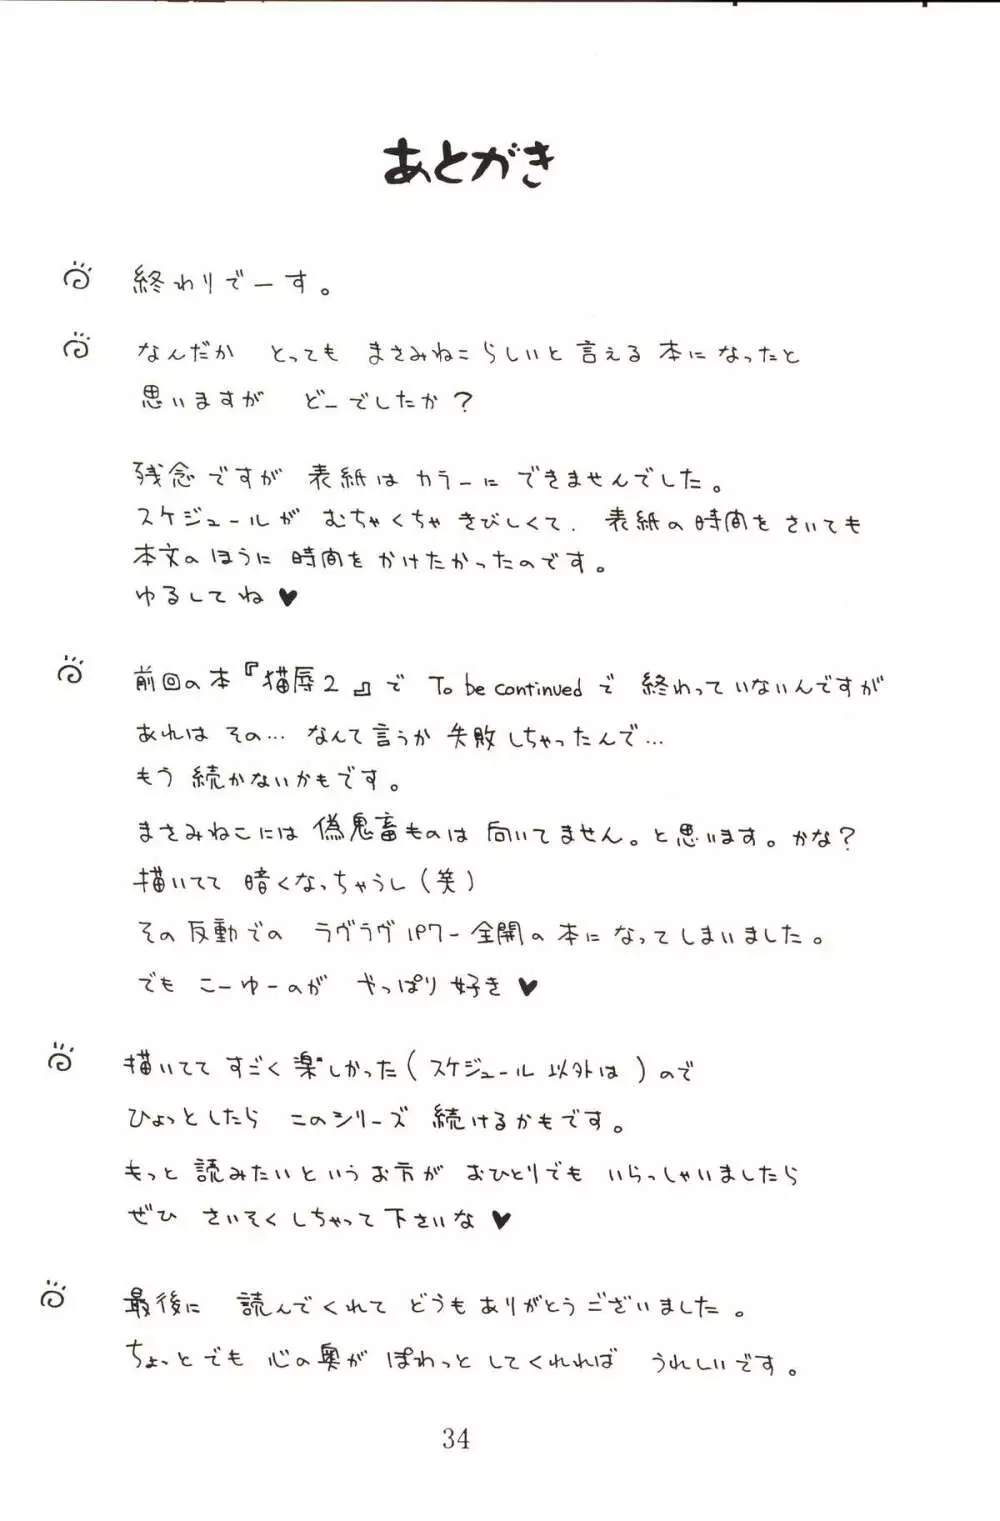 あとがき
終わりでーす。
なんだか とっても まさみねこらしいと言える本になったと
思いますが どーでしたか?
残念ですが 表紙はカラーにできませんでした。
スケジュールが むちゃくちゃきびしくて、表紙の時間をさいても
本文のほうに時間をかけたかったのです。
ゆるしてね♥
前回の本『猫辱2』で To be continuedで 終わっていないんですが
あれは その… なんて言うか 失敗しちゃったんで…
もう続かないかもです。
まさみねこには偽鬼畜ものは向いてません。と思います。かな?
描いてて 暗くなっちゃうし(笑)
その反動での ラヴラヴパワー全開の本になってしまいました。
でも こーゆーのが やっぱり好き♥
描いてて すごく楽しかった(スケジュール以外は)ので
ひょっとしたら このシリーズ 続けるかもです。
もっと読みたいというお方が おひとりでも いらっしゃいましたら
ぜひ さいそくしちゃって下さいな♥
最後に 読んでくれて どうもありがとうございました。
ちょっとでも 心の奥が ぽわっとしてくれれば うれしいです。
34